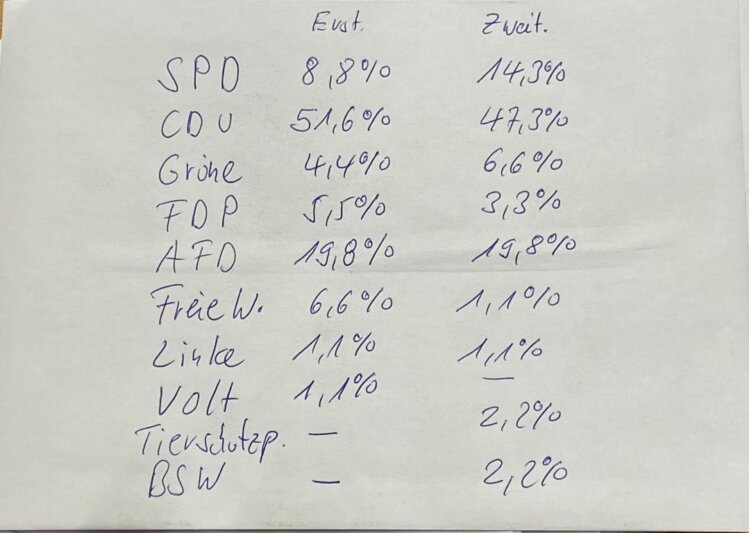 Erst. Zweit.
SPD 8,8% 14,3%
CDU 51,6% 47,3%
Grüne 4,4% 6,6%
FDP 5,5% 3,3%
AFD 19,8% 19,8%
Freie W. 6,6% 1,1%
Linke 1,1% 1,1%
Volt 1,1% —
Tierschutzp. — 2,2%
BSW — 2,2%